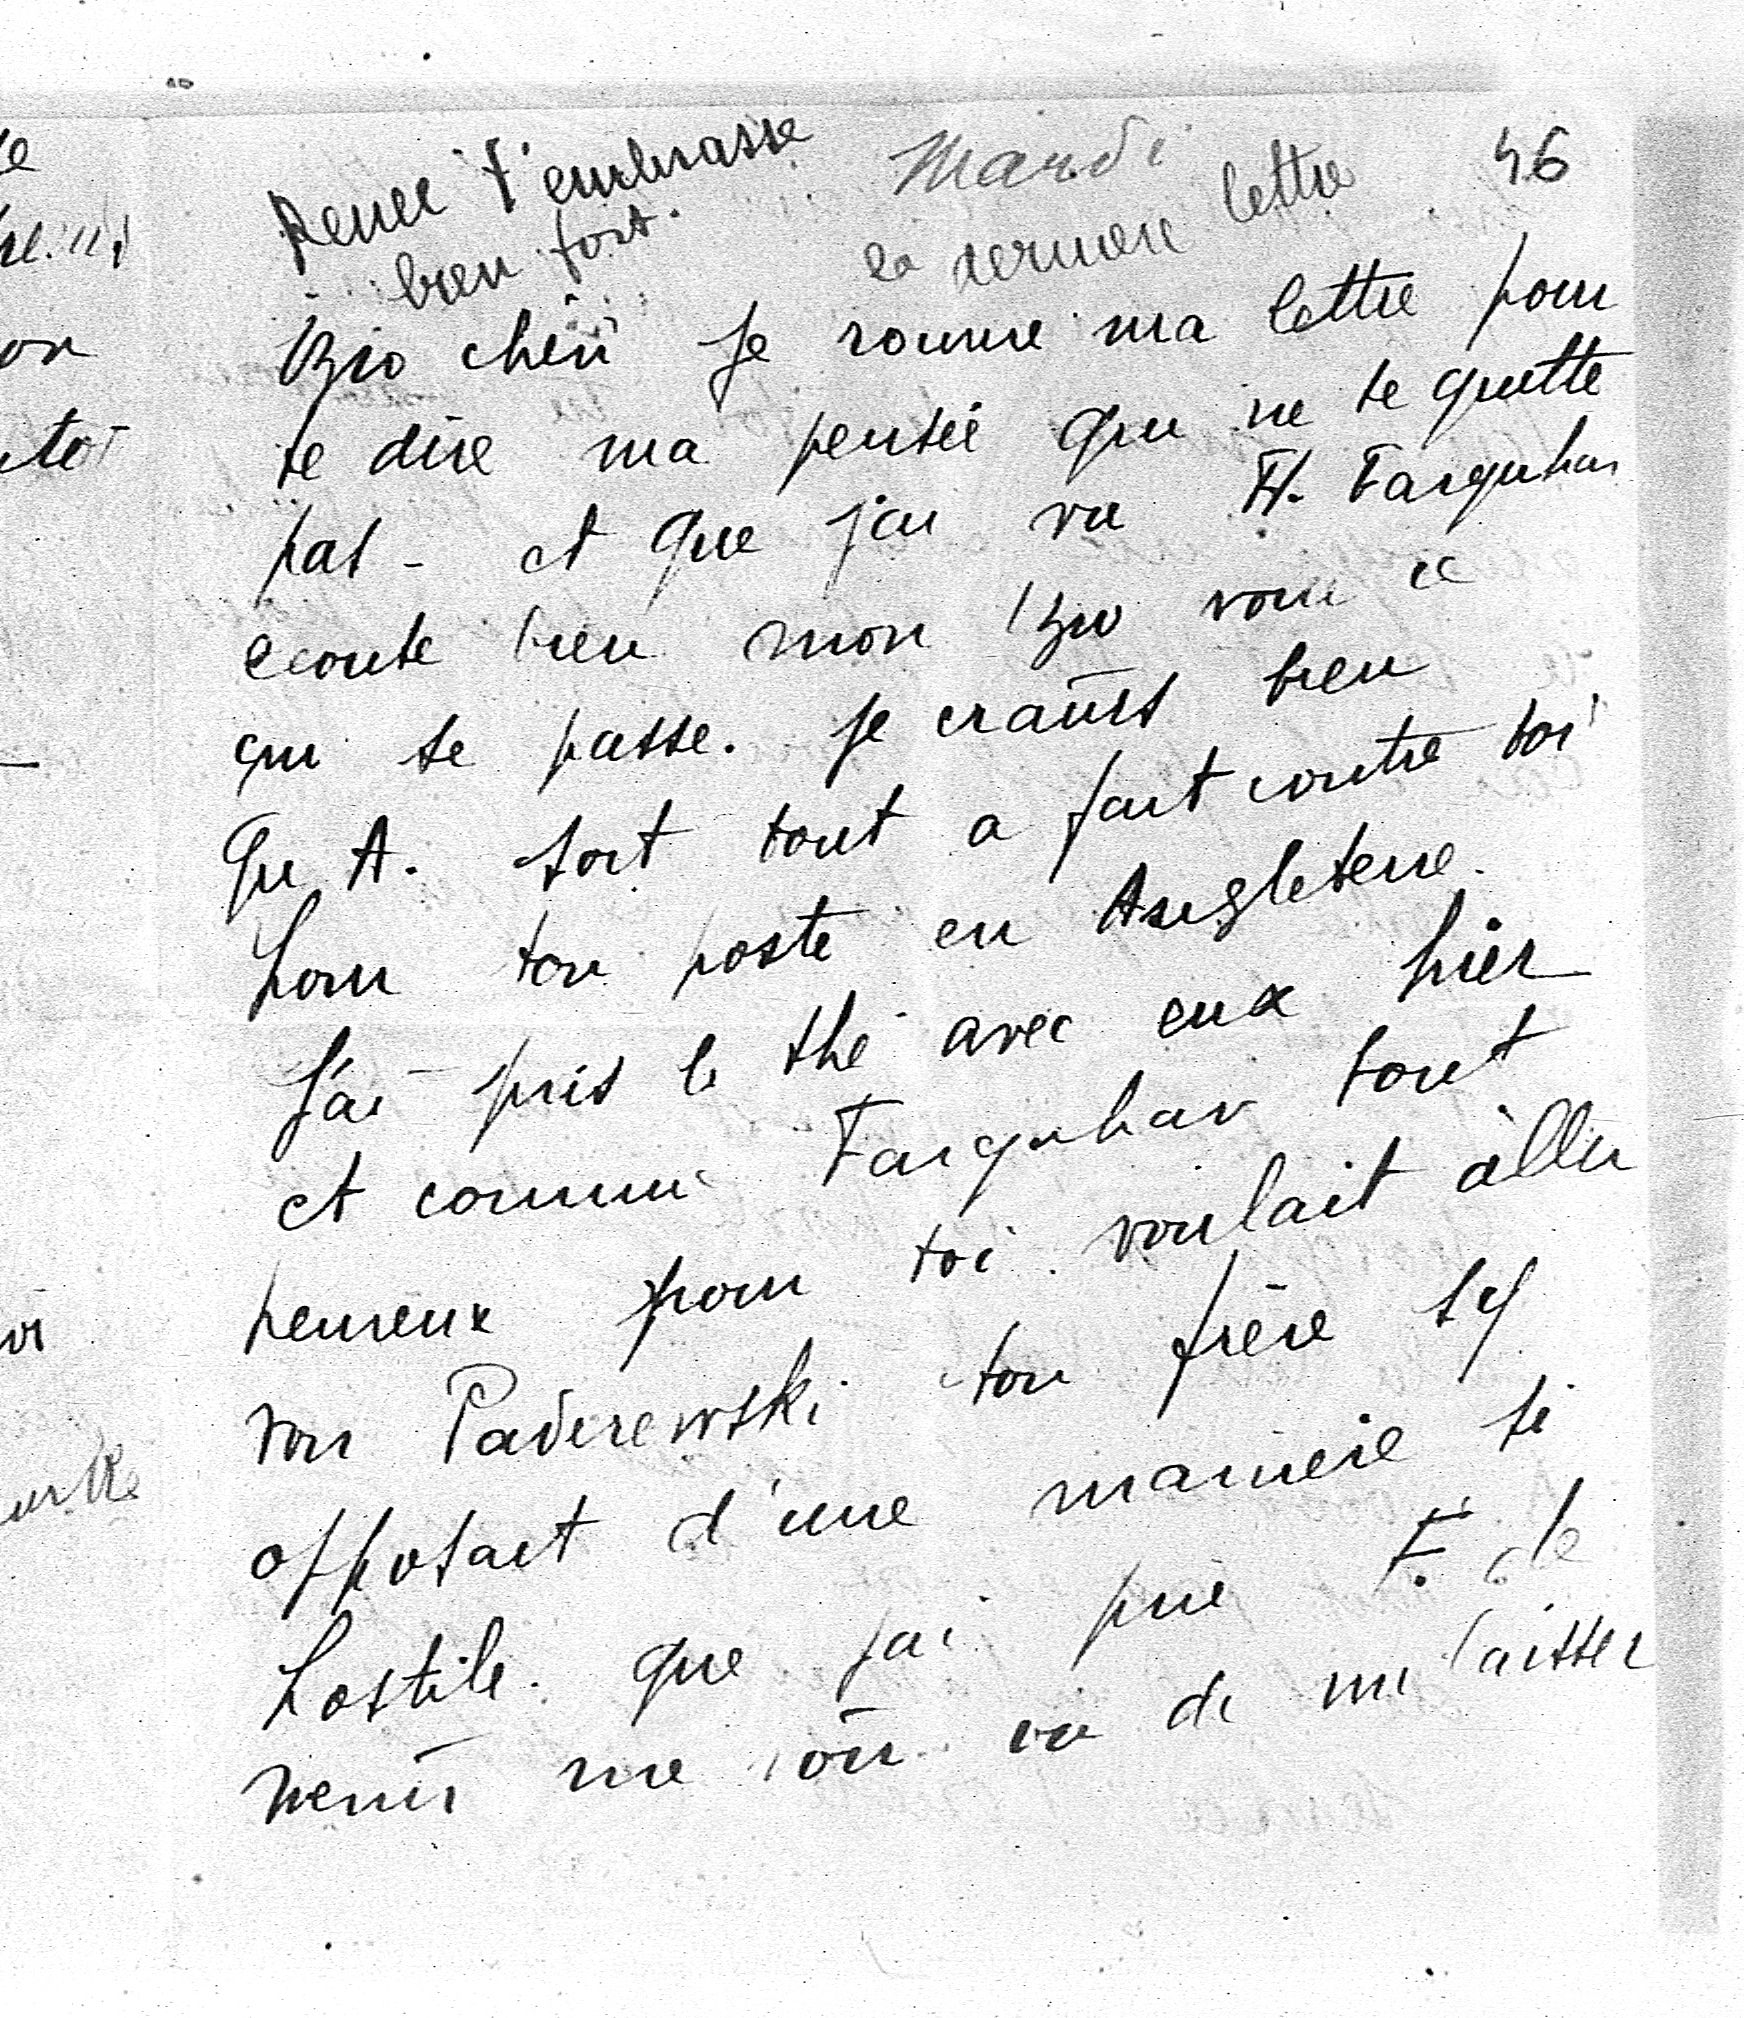 Renee t'embrasse
bien fort.
Mardi
46
la derniere lettre
Bzio cheri je rouvre ma lettre pour
te dire ma pensée qui ne te quitte
pas - et que j'ai vu H. Farquhar
ecoute bien mon Bzio voici ce
qui se passe. Je crains bien
Qu A. soit tout a fait contre toi
pour ton poste en Angleterre.
J'ai pris le thé avec eux hier
et comme Farquhar tout
heureux pour toi voulait aller
voir Paderewski ton frère s'y
opposait d'une maniere si
hostile. que j'ai prié F. de
venir me voir ou de me laisser